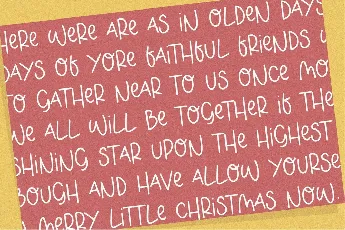 HERE WERE ARE AS IN OLDEN DAYS
DAYS OF YORE FAITHFUL FRIENDS
TO GATHER NEAR TO US ONCE MO
WE ALL WILL BE TOGETHER IF THE
SHINING STAR UPON THE HIGHEST
BOUGH AND HAVE ALLOW YOURSE
MERRY LITTLE CHRISTMAS NOW.